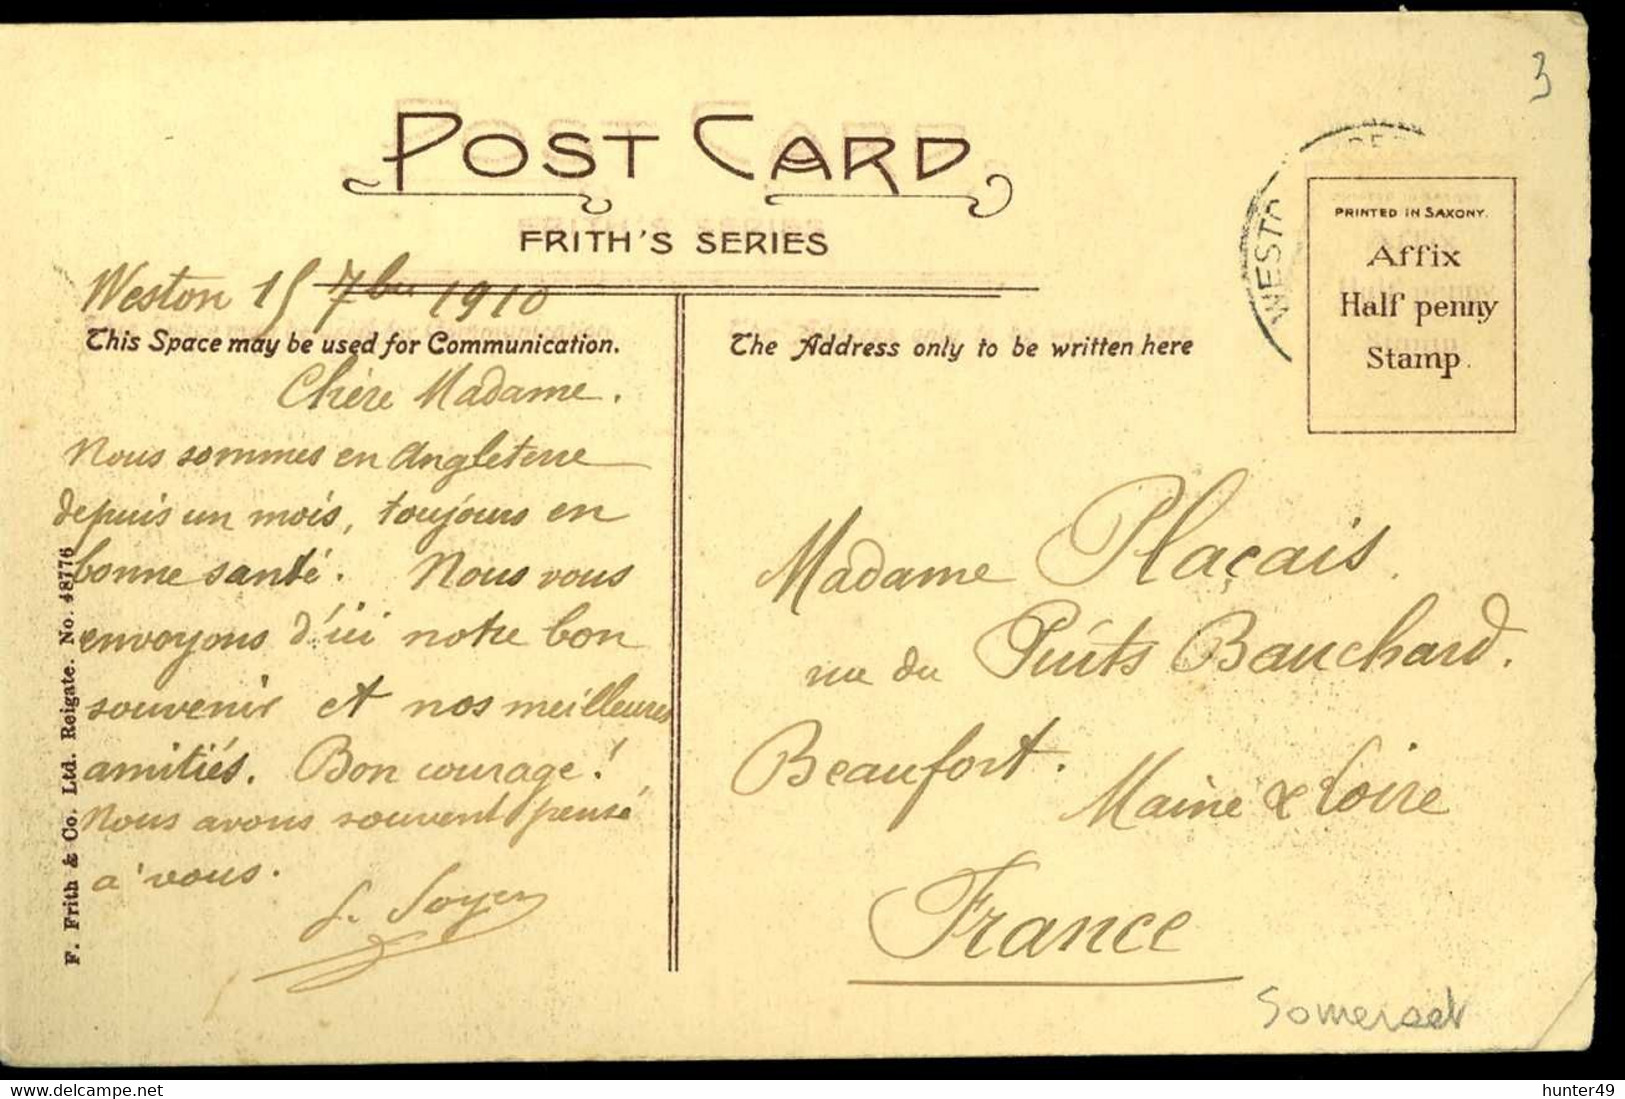 3
POST CARD
FRITH'S SERIES
WESTO
PRINTED IN SAXONY.
Affix
Half penny
Stamp.
Weston 15 7bre 1910
This Space may be used for Communication.
The Address only to be written here
Chère Madame.
Nous sommes en Angleterre
depuis un mois, toujours en
bonne santé. Nous vous
envoyons d'ici notre bon
souvenir et nos meilleures
amitiés. Bon courage!
Nous avons souvent pensé
à vous.
Madame Plaçais.
rue du Puits Bauchard.
Beaufort.
Maine & Loire
France
Somerset
F. Frith & Co. Ltd. Reigate. No. 48776
hunter49
delcampe.net